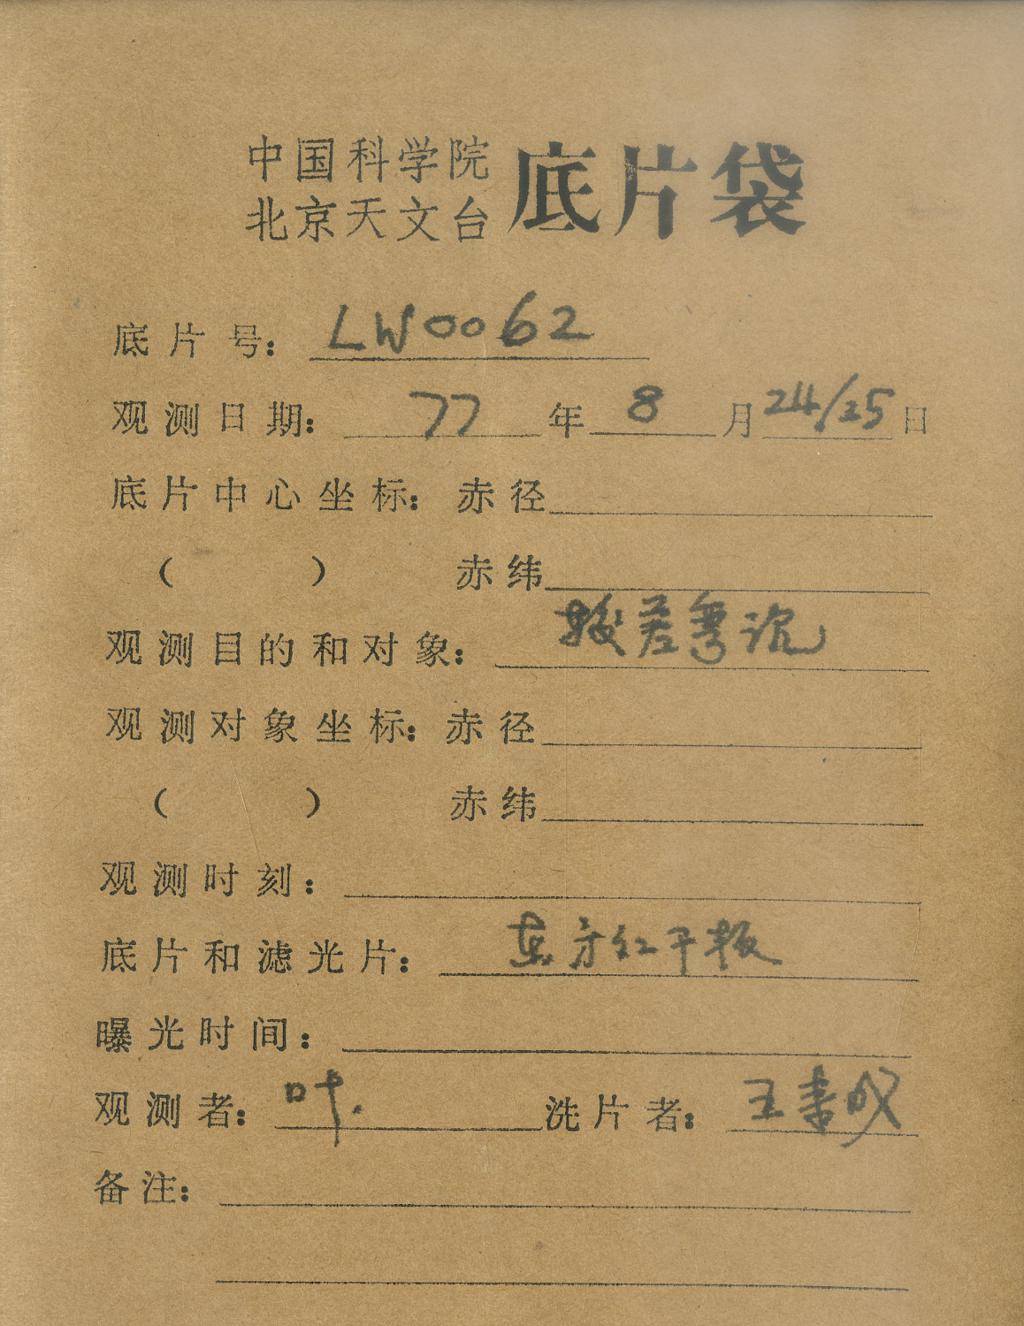 中国科学院
北京天文台 底片袋
底片号： LW0062
观测日期： 77 年 8 月 24/25 日
底片中心坐标：赤径
（ ） 赤纬
观测目的和对象：
观测对象坐标：赤径
（ ） 赤纬
观测时刻：
底片和滤光片： 东方红干板
曝光时间：
观测者： 叶. 洗片者： 王
备注：